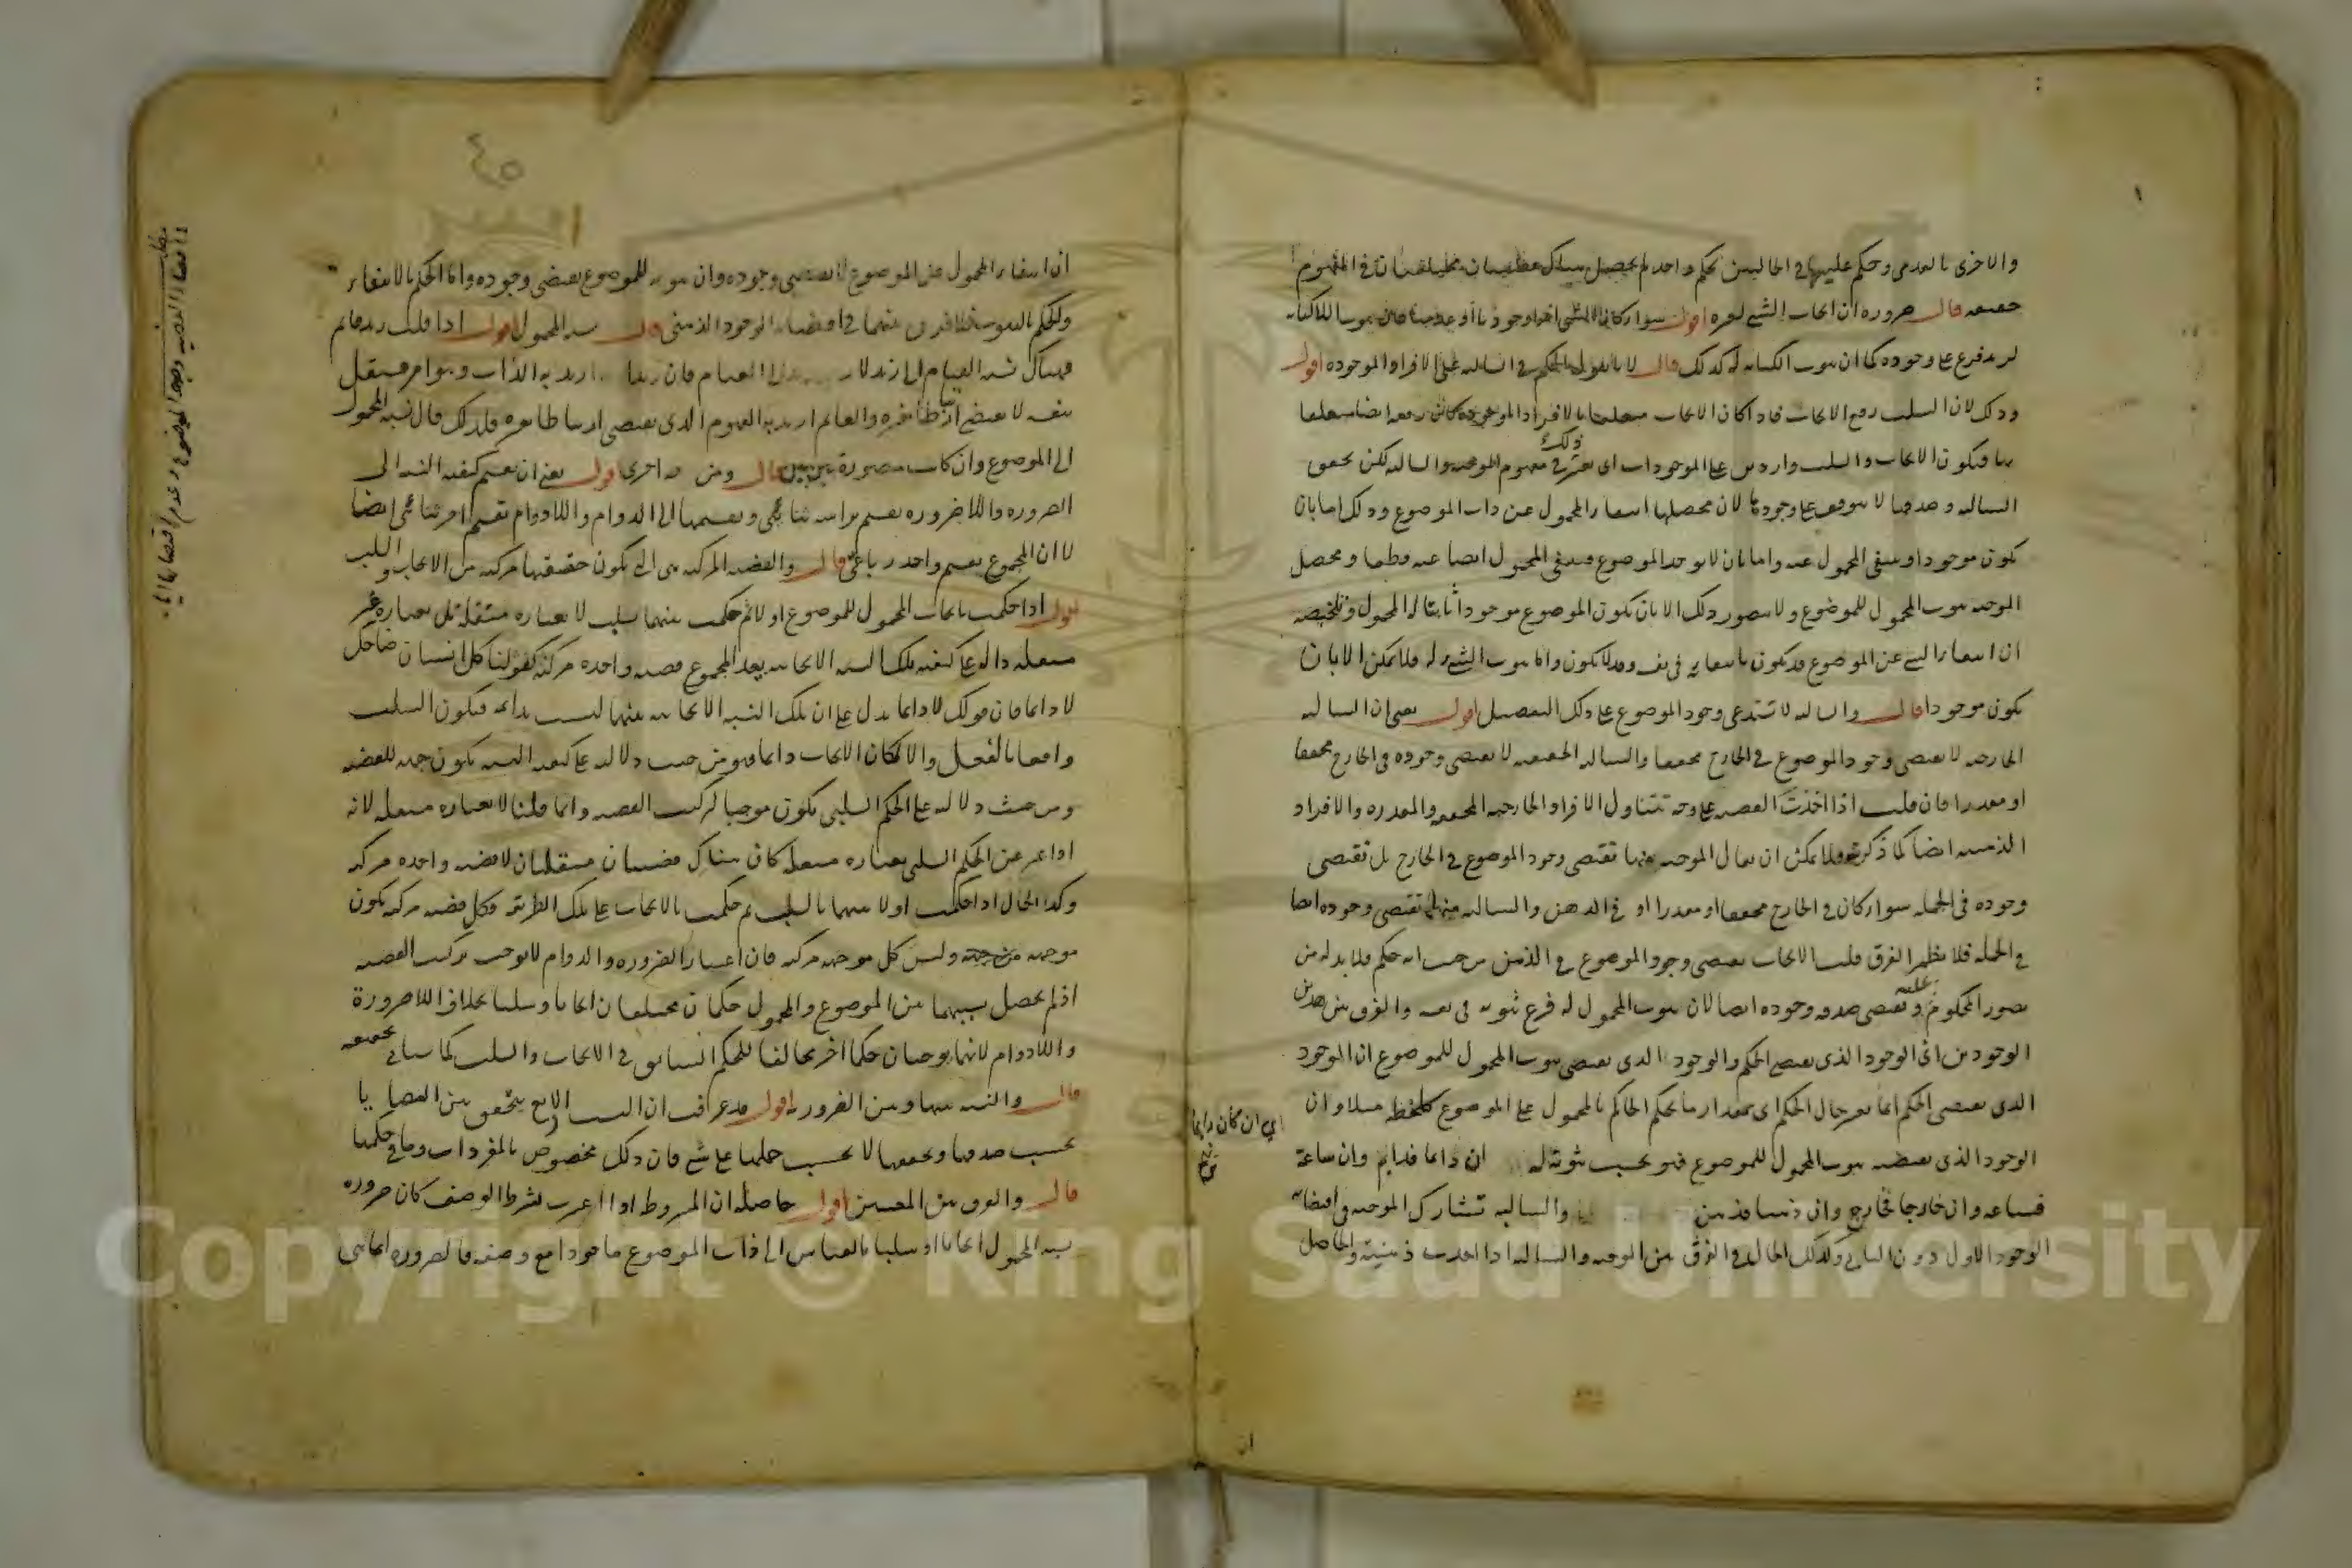 والاخرى بالعدمى وحكم عليهما في الحالتين بحكم واحد لم يحصل هناك قضيتان مختلفتان في المفهوم
حقيقة قال ضرورة ان ايجاب الشئ لغيره اقول سواء كان الشئ امرا وجوديا او عدميا فان ثبوت اللاكتابة
لزيد فرع على وجوده كما ان ثبوت الكتابة له كذلك قال لانا نقول الحكم في السالبة على الافراد الموجودة اقول
وذلك لان السلب رفع الايجاب فاذا كان الايجاب متعلقا بالافراد الموجودة كان رفعه ايضا متعلقا
بها فيكون الايجاب والسلب واردين على الموجودات اى يعتبر ذلك في مفهوم الموجبة والسالبة لكن تحقق
السالبة وصدقها لا يتوقف على وجودها لان محصلها انتفاء المحمول عن ذات الموضوع وذلك اما بان
يكون موجودا وينتفى المحمول عنه واما بان لا يوجد الموضوع فينتفى المحمول ايضا عنه قطعا ومحصل
الموجبة ثبوت المحمول للموضوع ولا يتصور ذلك الا بان يكون الموضوع موجودا ثابتا له المحمول وتلخيصه
ان انتفاء الشئ عن الموضوع قد يكون بانتفائه في نفسه وقد لا يكون واما ثبوت الشئ له فلا يمكن الا بان
يكون موجودا قال والسالبة لا تستدعى وجود الموضوع على ذلك التفصيل اقول يعنى ان السالبة
الخارجية لا تقتضى وجود الموضوع في الخارج محققا والسالبة الحقيقية لا تقتضى وجوده في الخارج محققا
او مقدرا فان قلت اذا اخذت القضية على وجه تتناول الافراد الخارجية المحققة والمقدرة والافراد
الذهنية ايضا كما ذكرته فلا يمكن ان يقال الموجبة منها تقتضى وجود الموضوع في الخارج بل تقتضى
وجوده في الجملة سواء كان في الخارج محققا او مقدرا او في الذهن والسالبة منها تقتضى وجوده ايضا
في الجملة فلا يظهر الفرق قلت الايجاب يقتضى وجود الموضوع في الذهن من حيث انه حكم فلا بد له من
تصور المحكوم عليه ويقتضى صدقه وجوده ايضا لان ثبوت المحمول له فرع ثبوته في نفسه والفرق بين هذين
الوجودين اى الوجود الذى يقتضيه الحكم والوجود الذى يقتضى ثبوت المحمول للموضوع ان الوجود
الذى يقتضى الحكم انما يعتبر حال الحكم اى بمقدار ما يحكم الحاكم بالمحمول على الموضوع كلحظة مثلا وان
الوجود الذى يقتضيه ثبوت المحمول للموضوع فهو بحسب ثبوته له ان دائما فدائم وان ساعة
فساعة وان خارجا فخارج وان ذهنا فذهن والسالبة تشارك الموجبة في اقتضاء
الوجود الاول دون الثانى وكذلك الحال في الفرق بين الموجبة والسالبة اذا اخذت ذهنية والحاصل
اي ان كان دايما
ان
٤٥
ان انتفاء المحمول عن الموضوع لا يقتضى وجوده وان ثبوته للموضوع يقتضى وجوده واما الحكم بالانتفاء
والحكم بالثبوت فلا فرق بينهما في اقتضاء الوجود الذهنى قال نسبة المحمول اقول اذا قلت زيد قائم
فهناك نسبة القيام الى زيد ونسبة زيد الى القيام فان زيدا اريد به الذات وهو امر مستقل
بنفسه لا يقتضى ارتباطا بغيره والقائم اريد به المفهوم الذى يقتضى ارتباطا بغيره فلذلك قال نسبة المحمول
الى الموضوع وان كانت متصورة بين بين قال ومن جهة اخرى اقول يعنى ان تقسيم كيفية النسبة الى
الضرورة واللاضرورة تقسيم برأسه ثنائى وتقسيمها الى الدوام واللادوام تقسيم اخر ثنائى ايضا
لا ان المجموع تقسيم واحد رباعى قال والقضية المركبة هى التى يكون حقيقتها مركبة من الايجاب والسلب
اقول اذا حكمت بايجاب المحمول للموضوع اولا ثم حكمت بينهما بسلب لا بعبارة مستقلة بل بعبارة غير
مستقلة دالة على كيفية تلك النسبة الايجابية يعد المجموع قضية واحدة مركبة كقولنا كل انسان ضاحك
لا دائما فان قولك لا دائما يدل على ان تلك النسبة الايجابية بينهما ليست بدائمة فيكون السلب
واقعا بالفعل والا لكان الايجاب دائما فهو من حيث دلالته على كيفية النسبة يكون جهة للقضية
ومن حيث دلالته على الحكم السلبى يكون موجبا لتركيب القضية وانما قلنا لا بعبارة مستقلة لانه
اذا عبر عن الحكم السلبى بعبارة مستقلة كان هناك قضيتان مستقلتان لا قضية واحدة مركبة
وكذا الحال اذا حكمت اولا بينهما بالسلب ثم حكمت بالايجاب على تلك الطريقة وكل قضية مركبة يكون
موجهة وليس كل موجهة مركبة فان اعتبار الضرورة والدوام لا يوجب تركيب القضية
اذ لم يحصل بسببهما بين الموضوع والمحمول حكمان مختلفان ايجابا وسلبا بخلاف اللاضرورة
واللادوام لانهما يوجبان حكما اخر مخالفا للحكم السابق في الايجاب والسلب كما سيأتى تحقيقه
قال والنسبة بينها وبين الضرورية اقول قد عرفت ان النسب الاربع يتحقق بين القضايا
بحسب صدقها وتحققها لا بحسب حملها على شئ فان ذلك مخصوص بالمفردات وما في حكمها
قال والفرق بين المعنيين اقول حاصله ان المشروطة اذا اعتبرت بشرط الوصف كان ضرورة
نسبة المحمول ايجابا او سلبا بالقياس الى ذات الموضوع ماخوذا مع وصفه فالضرورة انما هى